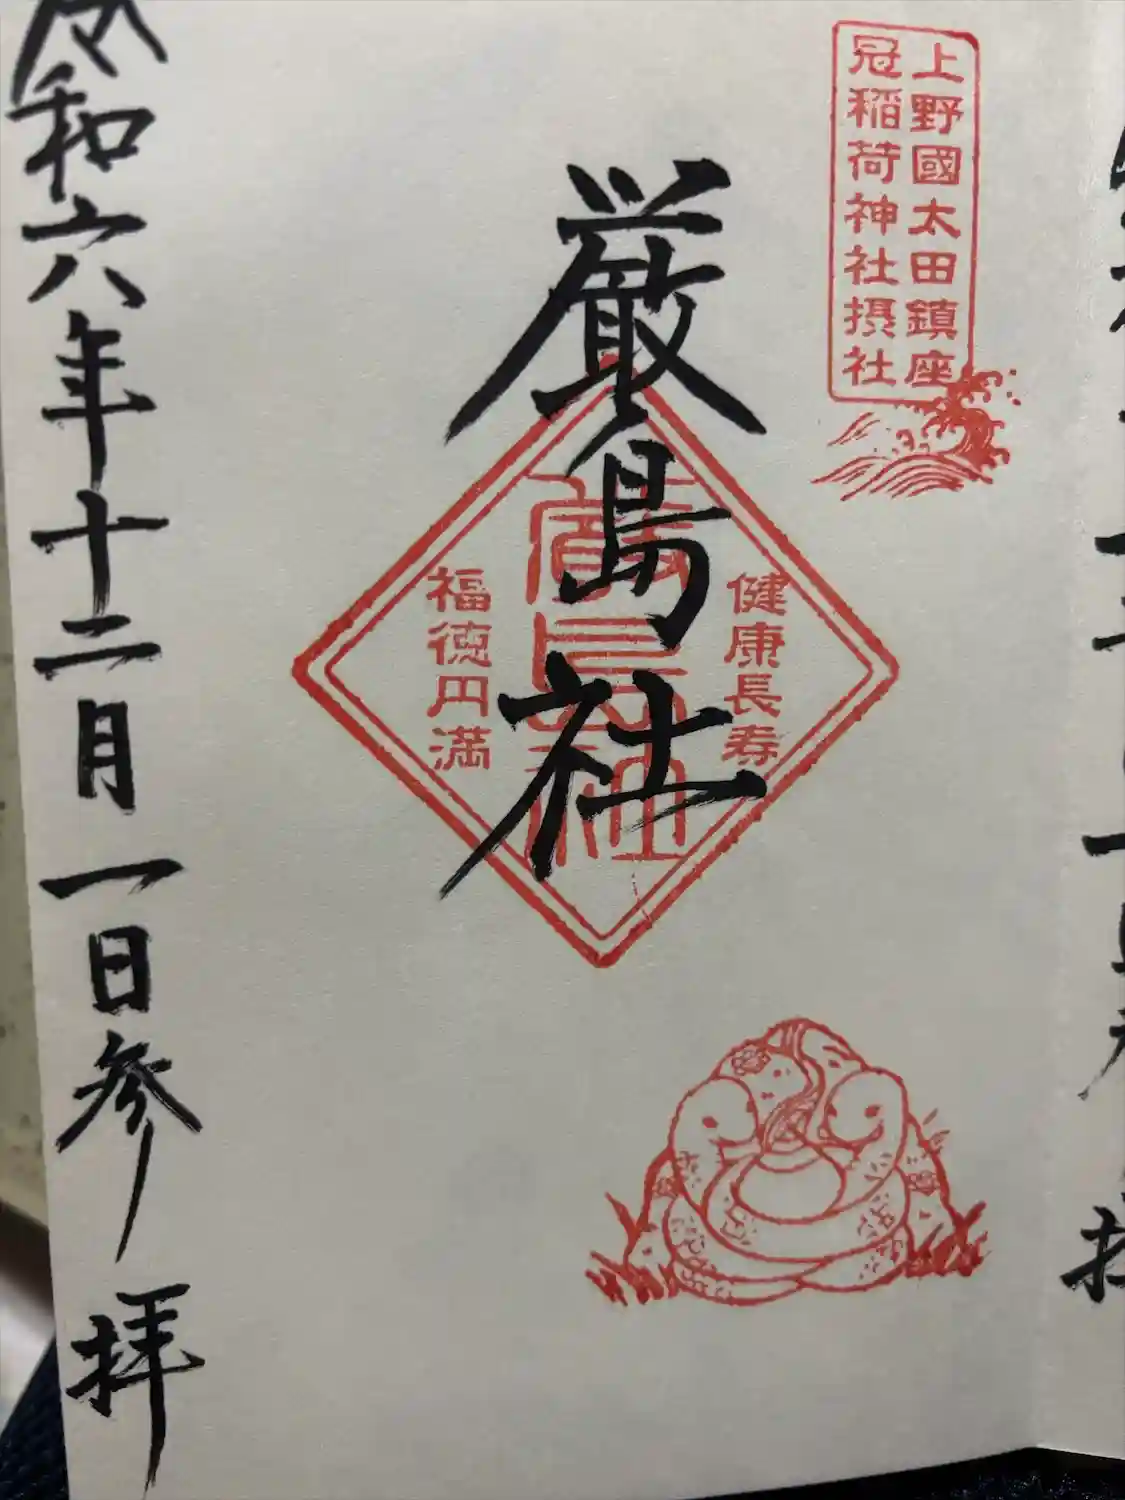 上野國太田鎮座
冠稲荷神社摂社
厳島社
健康長寿
福徳円満
厳島社
令和六年十二月一日参拝